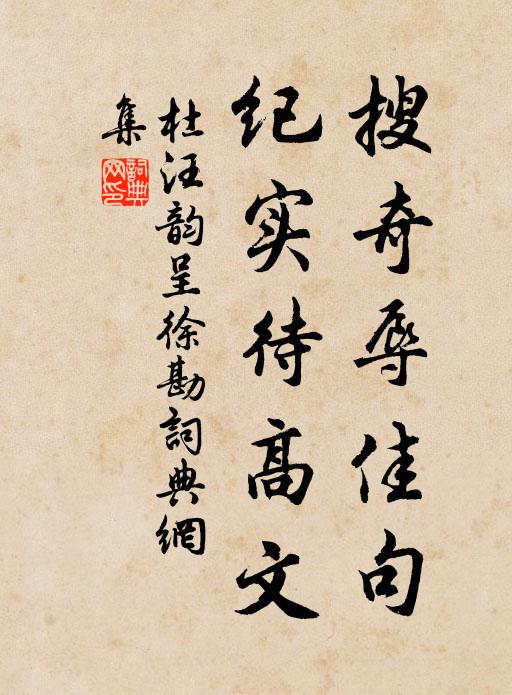 搜奇辱佳句
纪实待高文
杜汪韵呈徐勘词典网
集
词典网印